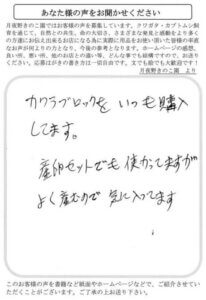 あなた様の声をお聞かせください
月夜野きのこ園ではお客様の声を募集しています。クワガタ・カブトムシ飼
育を通じて、自然との共生、命の大切さ、さまざまな発見と感動をより多く
の方達にお伝え出来るお店になる為に実際に用品をお使い頂いた皆様の率直
なお声が何よりの力となり、今後の参考となります。ホームページの感想、
良い所、悪い所、他のお店との違い等、どんな事でも結構ですので、お送り
ください。応募はがきの書き方は一切自由です。文でも絵でも大歓迎です！
月夜野きのこ園 より
カワラブロックを いつも購入
してます。
産卵セットでも使かってますが
よく産むので 気に入ってます
このお客様の声を書籍など紙面やホームページなどで、ご紹介させてい
ただくことがございます。ご了承の上お送り下さい。